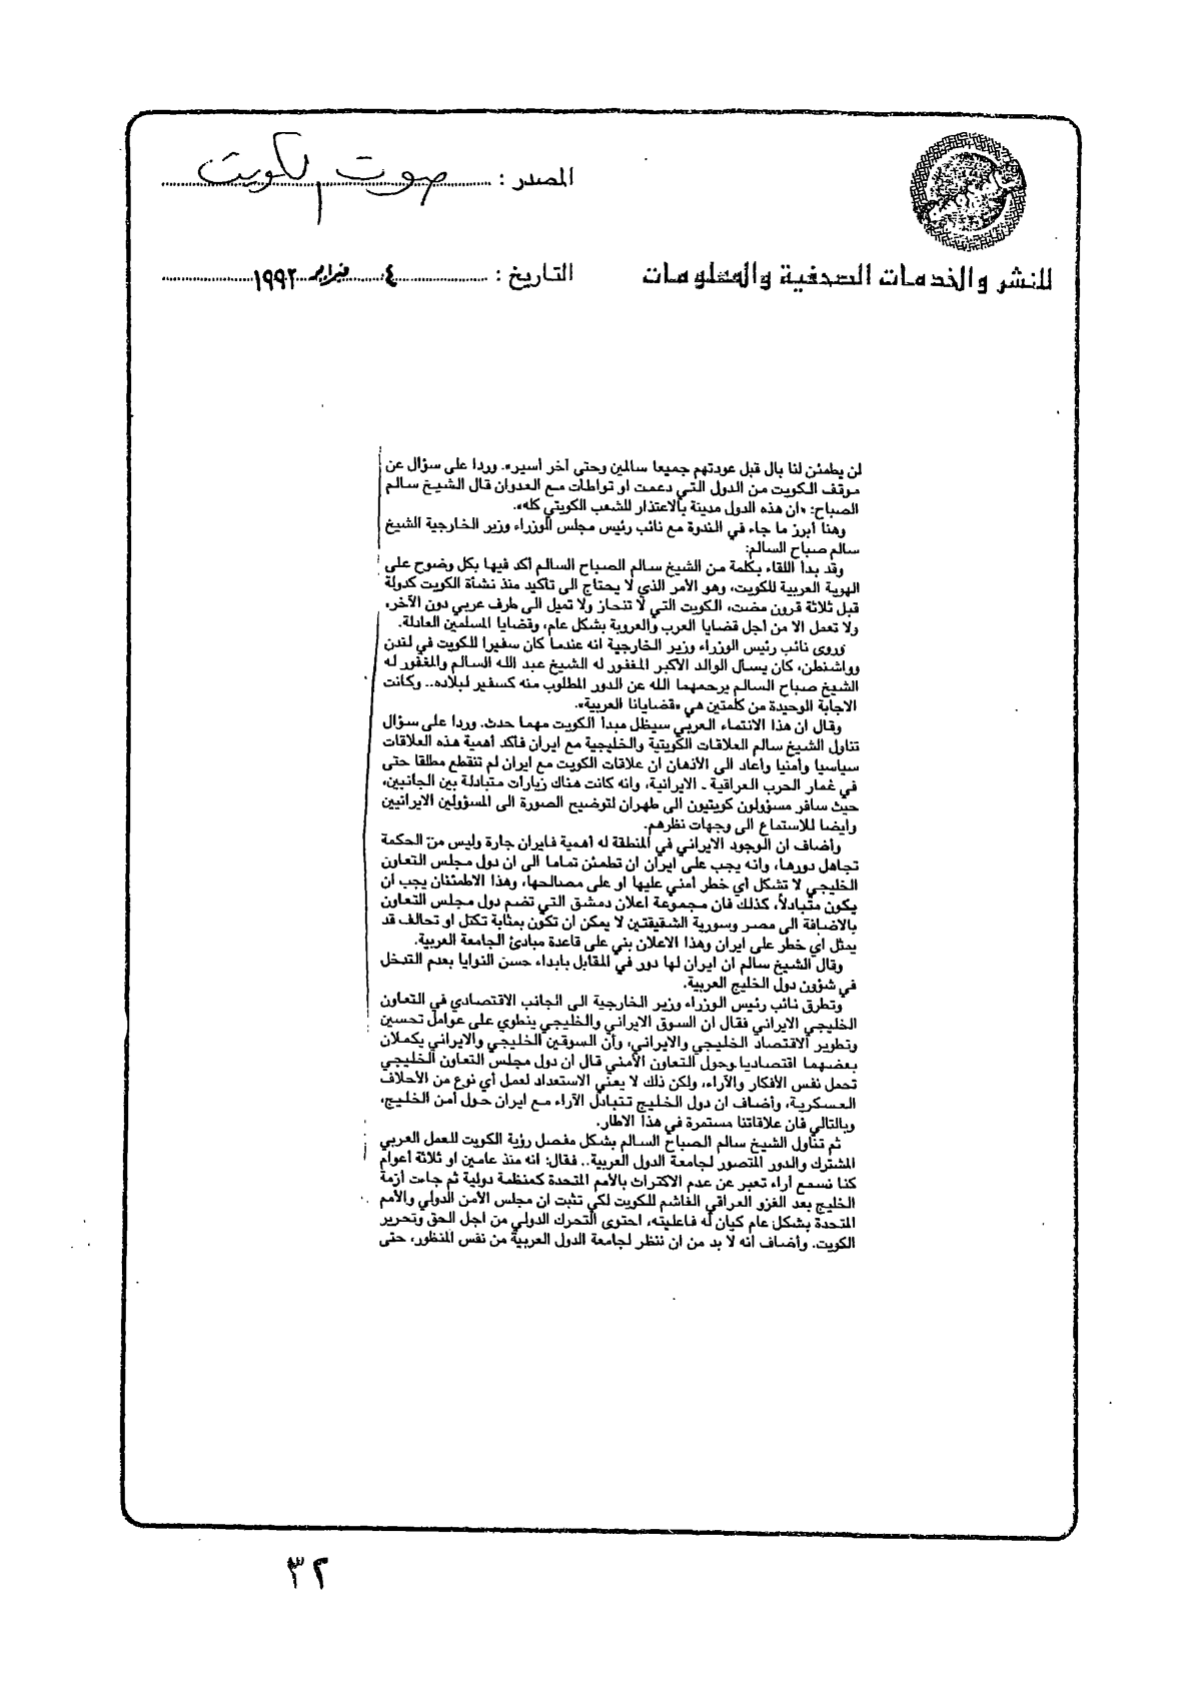 المصدر : صوت الكويت
للنشر والخدمات الصحفية والمعلومات
التاريخ : ٤ فبراير ١٩٩٢
لن يطمئن لنا بال قبل عودتهم جميعا سالمين وحتى آخر أسير». وردا على سؤال عن
موقف الكويت من الدول التي دعمت او تواطات مع العدوان قال الشيخ سالم
الصباح: «ان هذه الدول مدينة بالاعتذار للشعب الكويتي كله».
وهنا أبرز ما جاء في الندوة مع نائب رئيس مجلس الوزراء وزير الخارجية الشيخ
سالم صباح السالم:
وقد بدأ اللقاء بكلمة من الشيخ سالم الصباح السالم أكد فيها بكل وضوح على
الهوية العربية للكويت، وهو الأمر الذي لا يحتاج الى تاكيد منذ نشأة الكويت كدولة
قبل ثلاثة قرون مضت، الكويت التي لا تنحاز ولا تميل الى طرف عربي دون الآخر،
ولا تعمل الا من أجل قضايا العرب والعروبة بشكل عام، وقضايا المسلمين العادلة.
وروى نائب رئيس الوزراء وزير الخارجية انه عندما كان سفيرا للكويت في لندن
وواشنطن، كان يسأل الوالد الاكبر المغفور له الشيخ عبد الله السالم والمغفور له
الشيخ صباح السالم يرحمهما الله عن الدور المطلوب منه كسفير لبلاده.. وكانت
الاجابة الوحيدة من كلمتين هي «قضايانا العربية».
وقال ان هذا الانتماء العربي سيظل مبدأ الكويت مهما حدث. وردا على سؤال
تناول الشيخ سالم العلاقات الكويتية والخليجية مع ايران فأكد أهمية هذه العلاقات
سياسيا وأمنيا وأعاد الى الأذهان ان علاقات الكويت مع ايران لم تنقطع مطلقا حتى
في غمار الحرب العراقية ـ الايرانية، وانه كانت هناك زيارات متبادلة بين الجانبين،
حيث سافر مسؤولون كويتيون الى طهران لتوضيح الصورة الى المسؤولين الايرانيين
وايضا للاستماع الى وجهات نظرهم.
وأضاف ان الوجود الايراني في المنطقة له أهمية فايران جارة وليس من الحكمة
تجاهل دورها، وانه يجب على ايران ان تطمئن تماما الى ان دول مجلس التعاون
الخليجي لا تشكل أي خطر أمني عليها او على مصالحها، وهذا الاطمئنان يجب ان
يكون متبادلاً، كذلك فان مجموعة اعلان دمشق التي تضم دول مجلس التعاون
بالاضافة الى مصر وسورية الشقيقتين لا يمكن ان تكون بمثابة تكتل او تحالف قد
يمثل أي خطر على ايران وهذا الاعلان بني على قاعدة مبادئ الجامعة العربية.
وقال الشيخ سالم ان ايران لها دور في المقابل بابداء حسن النوايا بعدم التدخل
في شؤون دول الخليج العربية.
وتطرق نائب رئيس الوزراء وزير الخارجية الى الجانب الاقتصادي في التعاون
الخليجي الايراني فقال ان السوق الايراني والخليجي ينطوي على عوامل تحسين
وتطوير الاقتصاد الخليجي والايراني، وأن السوقين الخليجي والايراني يكملان
بعضهما اقتصاديا وحول التعاون الأمني قال ان دول مجلس التعاون الخليجي
تحمل نفس الأفكار والآراء، ولكن ذلك لا يعني الاستعداد لعمل أي نوع من الأحلاف
العسكرية، وأضاف ان دول الخليج تتبادل الآراء مع ايران حول أمن الخليج،
وبالتالي فان علاقاتنا مستمرة في هذا الاطار.
ثم تناول الشيخ سالم الصباح السالم بشكل مفصل رؤية الكويت للعمل العربي
المشترك والدور المتصور لجامعة الدول العربية.. فقال: انه منذ عامين او ثلاثة أعوام
كنا نسمع اراء تعبر عن عدم الاكتراث بالأمم المتحدة كمنظمة دولية ثم جاءت أزمة
الخليج بعد الغزو العراقي الغاشم للكويت لكي تثبت ان مجلس الأمن الدولي والأمم
المتحدة بشكل عام كيان له فاعليته، احتوى التحرك الدولي من اجل الحق وتحرير
الكويت. وأضاف انه لا بد من ان ننظر لجامعة الدول العربية من نفس المنظور، حتى
٣٢